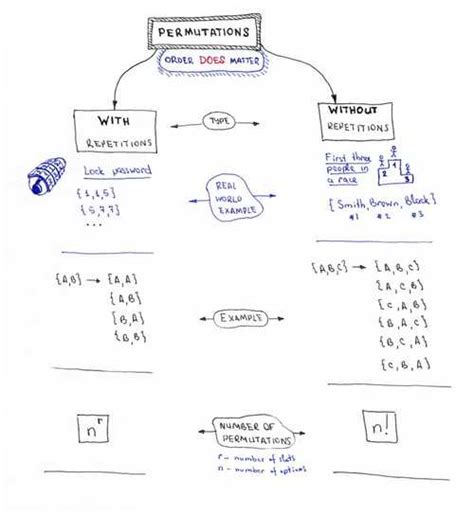 PERMUTATIONS
ORDER DOES MATTER
WITH
REPETITIONS
TYPE
WITHOUT
REPETITIONS
Lock password
{1,1,5}
{5,7,7}
...
REAL
WORLD
EXAMPLE
First three
people in
a race
1
2
3
{Smith, Brown, Black}
#1 #2 #3
{A,B} → {A,A}
{A,B}
{B,A}
{B,B}
EXAMPLE
{A,B,C} → {A,B,C}
{A,C,B}
{C,A,B}
{B,A,C}
{B,C,A}
{C,B,A}
n^r
NUMBER OF
PERMUTATIONS
r - number of slots
n - number of options
n!